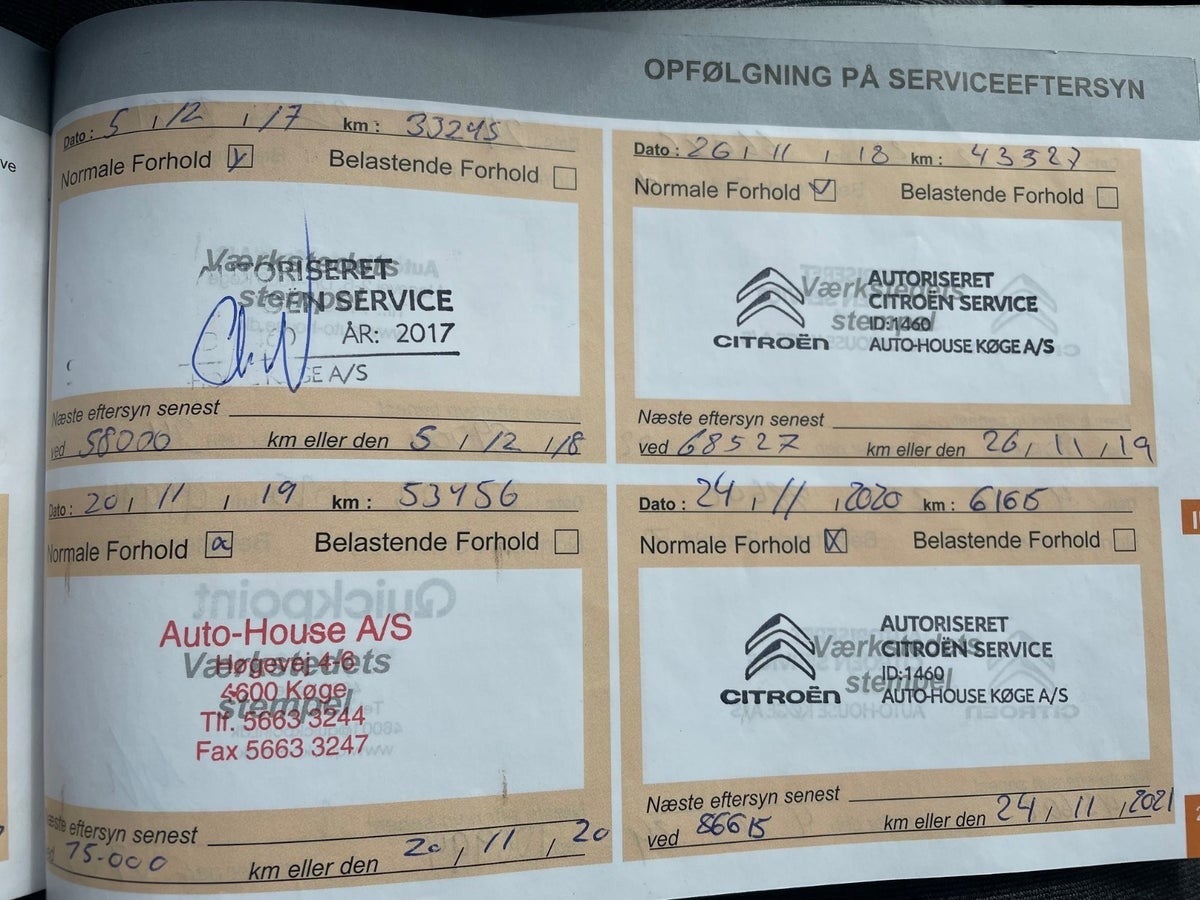 OPFØLGNING PÅ SERVICEEFTERSYN
Dato : 5 / 12 / 17 km : 33245
Normale Forhold Belastende Forhold
Værkstedets
stempel
AUTORISERET
SERVICE
ÅR: 2017
A/S
Næste eftersyn senest
ved 58000 km eller den 5 / 12 / 18
Dato : 26 / 11 / 18 km : 43527
Normale Forhold Belastende Forhold
Værkstedets
stempel
AUTORISERET
CITROËN SERVICE
ID:1460
CITROËN AUTO-HOUSE KØGE A/S
Næste eftersyn senest
ved 68527 km eller den 26 / 11 / 19
Dato : 20 / 11 / 19 km : 53456
Normale Forhold Belastende Forhold
Auto-House A/S
Værkstedets
stempel
Høgevej 4-6
4600 Køge
Tlf. 5663 3244
Fax 5663 3247
eftersyn senest
75-000 km eller den 20 / 11 / 20
Dato : 24 / 11 / 2020 km : 61615
Normale Forhold Belastende Forhold
Værkstedets
stempel
AUTORISERET
CITROËN SERVICE
ID:1460
CITROËN AUTO-HOUSE KØGE A/S
Næste eftersyn senest
ved 86615 km eller den 24 / 11 / 2021